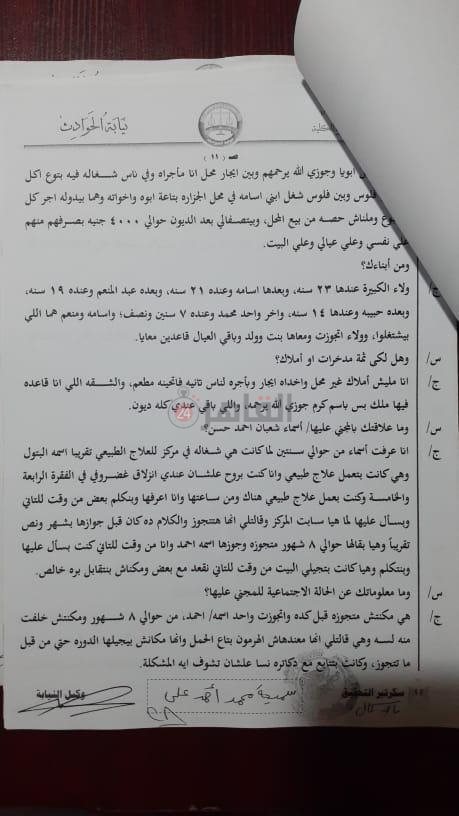 نيابة الحوادث
الكلية
صـ ( ١١ )
ابويا وجوزي الله يرحمهم وبين ايجار محل انا مأجراه وفي ناس شغاله فيه بتوع اكل
فلوس وبين فلوس شغل ابني اسامه في محل الجزاره بتاعة ابوه واخواته وهما بيدوله اجر كل
وملناش حصه من بيع المحل، وبيتصفالي بعد الديون حوالي ٤٠٠٠ جنيه بصرفهم منهم
علي نفسي وعلي عيالي وعلي البيت.
ومن أبناءك؟
ج/ ولاء الكبيرة عندها ٢٣ سنه، وبعدها اسامه وعنده ٢١ سنه، وبعده عبد المنعم وعنده ١٩ سنه،
وبعده حبيبه وعندها ١٤ سنه، واخر واحد محمد وعنده ٧ سنين ونصف؛ واسامه ومنعم هما اللي
بيشتغلوا، وولاء اتجوزت ومعاها بنت وولد وباقي العيال قاعدين معايا.
س/ وهل لكي ثمة مدخرات او أملاك؟
ج/ انا مليش أملاك غير محل واخداه ايجار وبأجره لناس تانيه فاتحينه مطعم، والشقه اللي انا قاعده
فيها ملك بس باسم كرم جوزي الله يرحمه، واللي باقي عندي كله ديون.
س/ وما علاقتك بالمجني عليها/ أسماء شعبان احمد حسن؟
ج/ انا عرفت أسماء من حوالي سنتين لما كانت هي شغاله في مركز للعلاج الطبيعي تقريبا اسمه البتول
وهي كانت بتعمل علاج طبيعي وانا كنت بروح علشان عندي انزلاق غضروفي في الفقرة الرابعة
والخامسة وكنت بعمل علاج طبيعي هناك ومن ساعتها وانا اعرفها وبنتكلم بعض من وقت للتاني
وبسأل عليها لما هيا سابت المركز وقالتلي انها هتتجوز والكلام ده كان قبل جوازها بشهر ونص
تقريباً وهيا بقالها حوالي ٨ شهور متجوزه وجوزها اسمه احمد وانا من وقت للتاني كنت بسأل عليها
وبنتكلم وهيا كانت بتجيلي البيت من وقت للتاني نقعد مع بعض ومكناش بنتقابل بره خالص.
س/ وما معلوماتك عن الحالة الاجتماعية للمجني عليها؟
ج/ هي مكنتش متجوزه قبل كده واتجوزت واحد اسمه/ احمد، من حوالي ٨ شهور ومكنتش خلفت
منه لسه وهي قالتلي انها معندهاش الهرمون بتاع الحمل وانها مكانش بيجيلها الدوره حتي من قبل
ما تتجوز، وكانت بتتابع مع دكاتره نسا علشان تشوف ايه المشكلة.
سكرتير التحقيق
سمية محمد أحمد على
وكيل النيابة
القاهرة 24